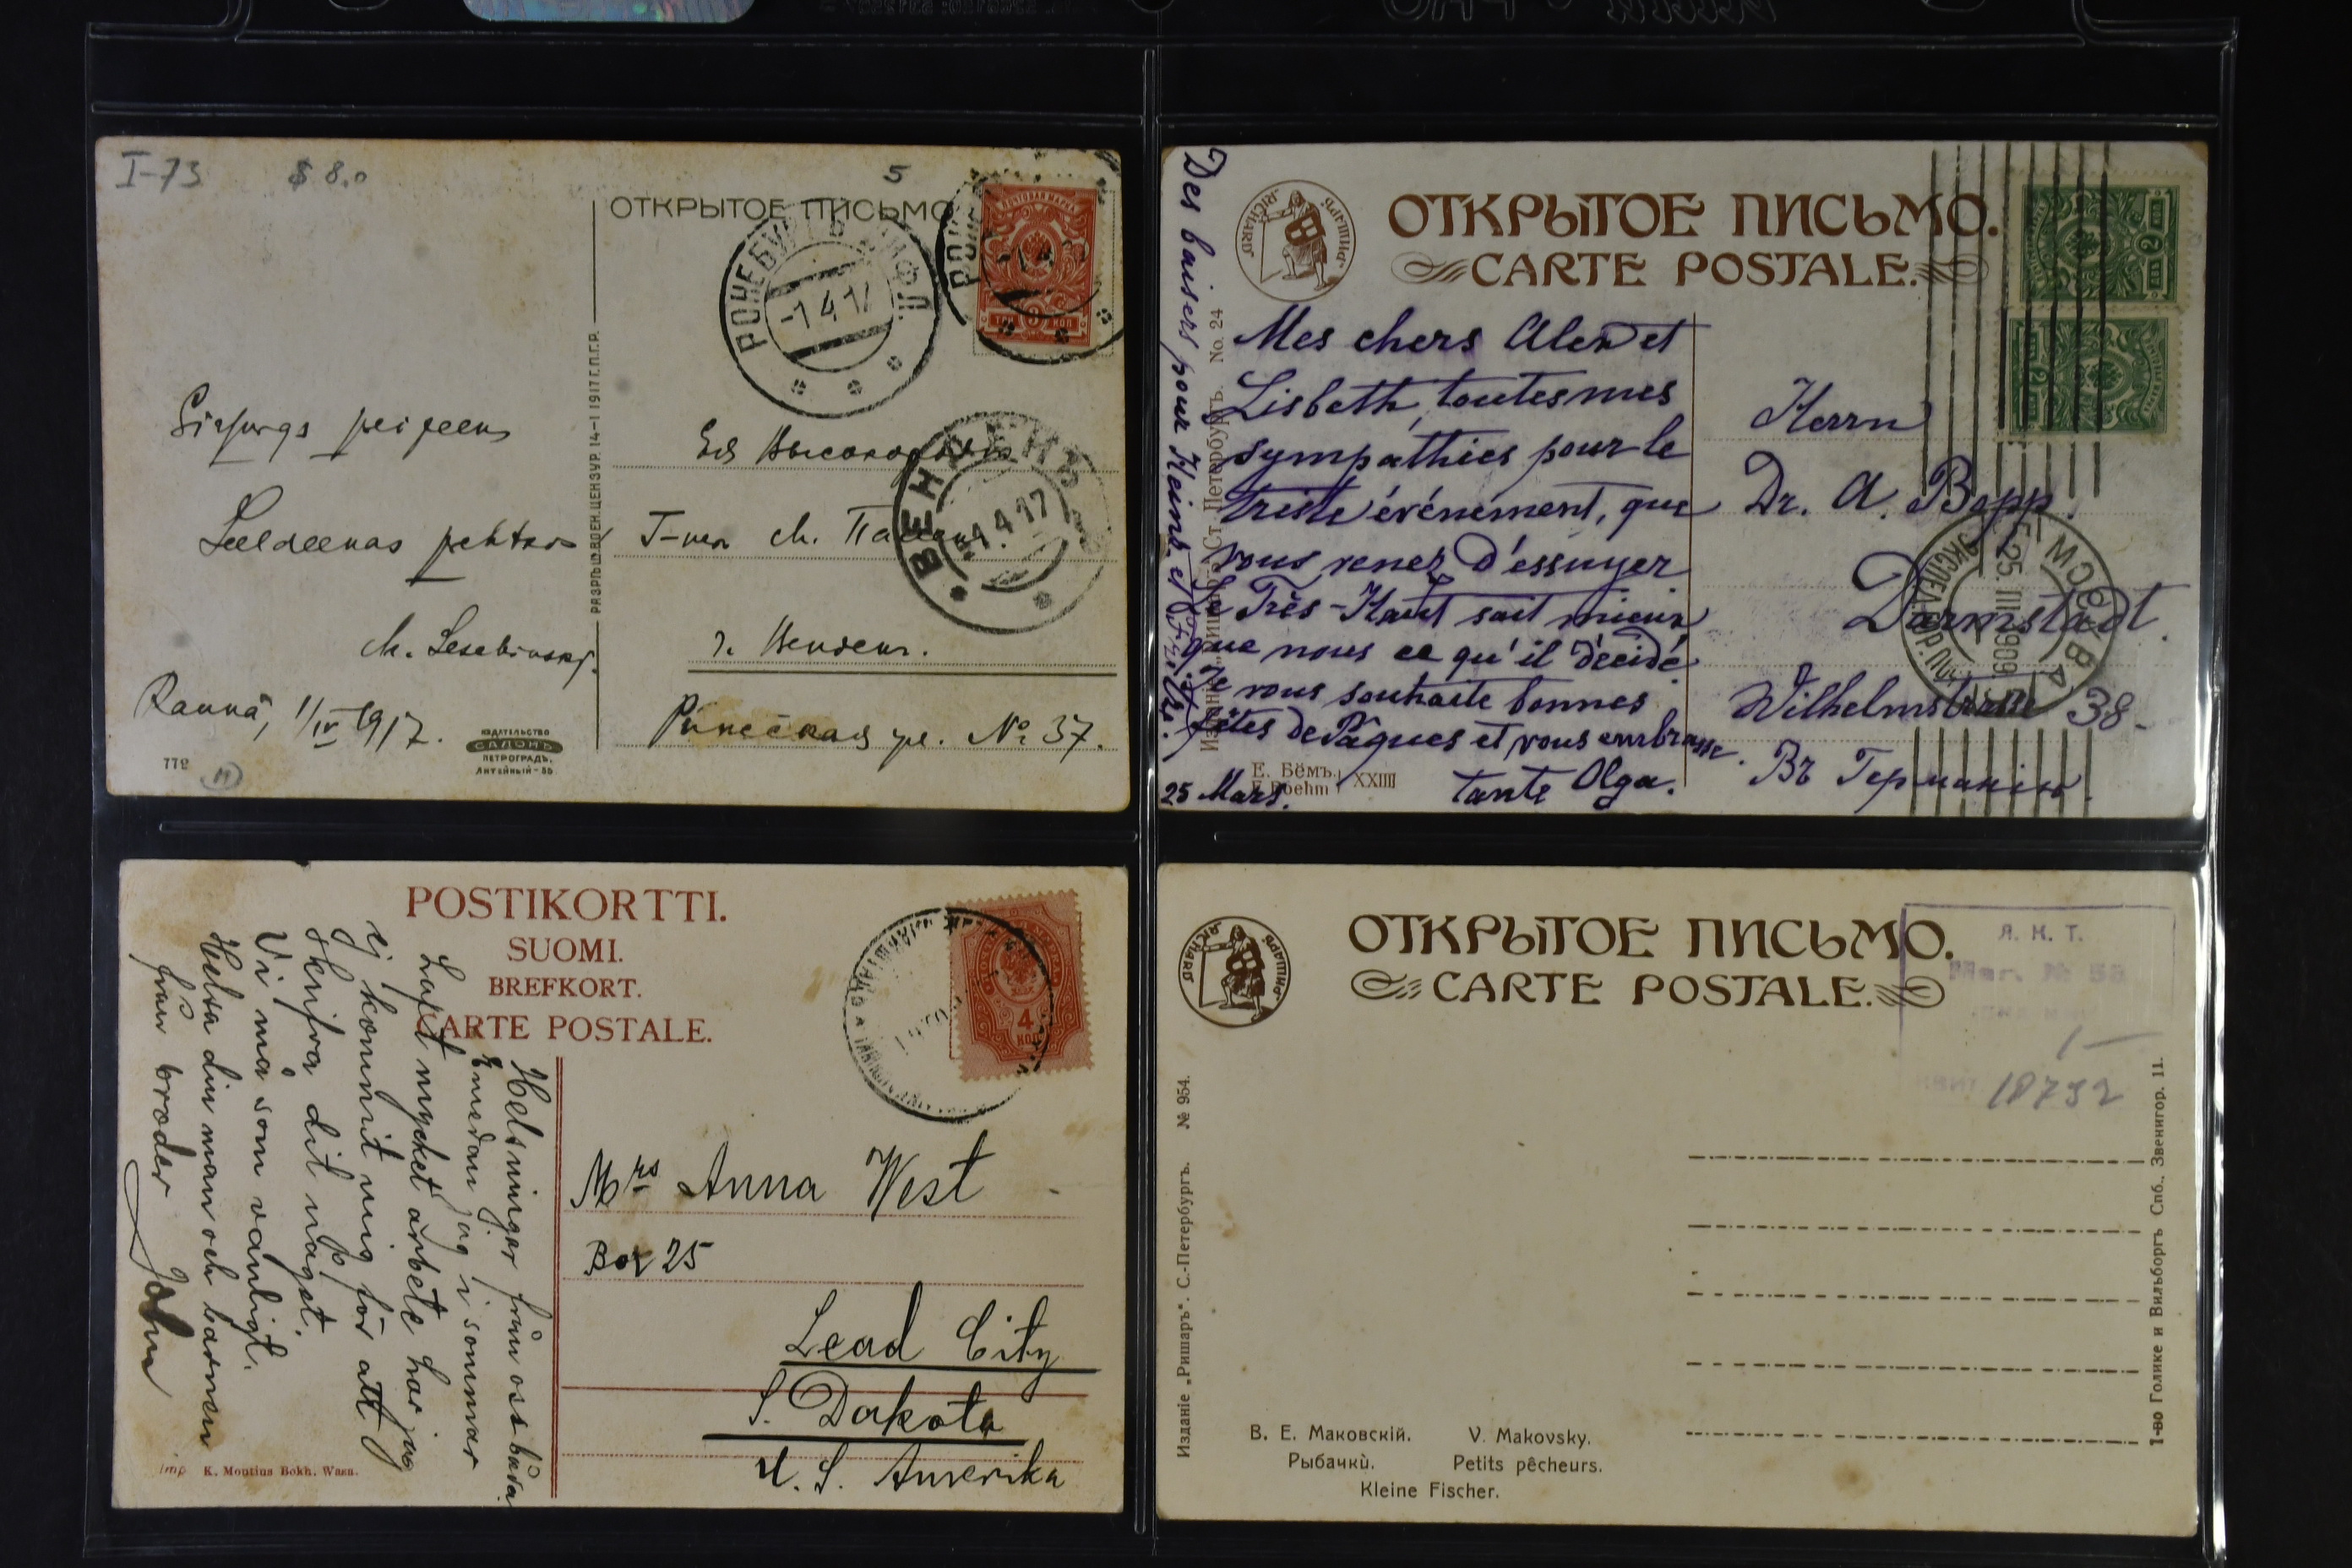 I-73 $ 8.0 5
ОТКРЫТОЕ ПИСЬМО
РОНЕБУРГЪ ЛИФЛ.
-1 4 17
ТРИ 3 КОП
ВЕНДЕНЪ
-1 4 17
РАЗРѢШ. ВОЕН. ЦЕНЗУР. 14-I 1917 Г. П.Г.Р.
1/IV 1917.
Ея Высокородіе
Г-жа М.
г. Венденъ.
Рижская ул. № 37.
ИЗДАТЕЛЬСТВО
САЛОНЪ
ПЕТРОГРАДЪ.
ЛИТЕЙНЫЙ-55
772
M
ОТКРЫТОЕ ПИСЬМО.
CARTE POSTALE.
„RICHARD“ „РИШАРЪ“
Mes chers Alex et
Lisbeth, toutes mes
sympathies pour le
triste événement, que
vous venez d'essuyer
Le Très-Haut sait mieux
que nous ce qu'il décidé.
Je vous souhaite bonnes
fêtes de Pâques et vous embrasse.
tante Olga.
25 Mars.
Des baisers pour Heine et
Изданіе „Ришаръ“, Ст. Петербургъ. No. 24
Е. Бёмъ.
E. Boehm
XXIIII
Herrn
Dr. A. Bopp.
Darmstadt.
Wilhelmstrasse 38-
Въ Германію.
МОСКВА
25. III 1909
ЭКСПЕД.
2
2
POSTIKORTTI.
SUOMI.
BREFKORT.
CARTE POSTALE.
4
КОП
Helsningar från oss båda
Emedan jag i sommar
haft mycket arbete har jag
ej kommit mig för att
skrifva dit något.
Vi må som vanligt.
Helsa din man och barnen
från broder John
Mrs Anna West
Box 25
Lead City
S. Dakota
U. S. Amerika
Imp K. Montins Bokh. Wasa.
ОТКРЫТОЕ ПИСЬМО.
CARTE POSTALE.
„RICHARD“ „РИШАРЪ“
Л. К. Т.
Маг. № 55
1—
18792
Изданіе „Ришаръ“. С.-Петербургъ. № 954.
Т-во Голике и Вильборгъ Спб., Звенигор. 11.
В. Е. Маковскій. V. Makovsky.
Рыбачки. Petits pêcheurs.
Kleine Fischer.